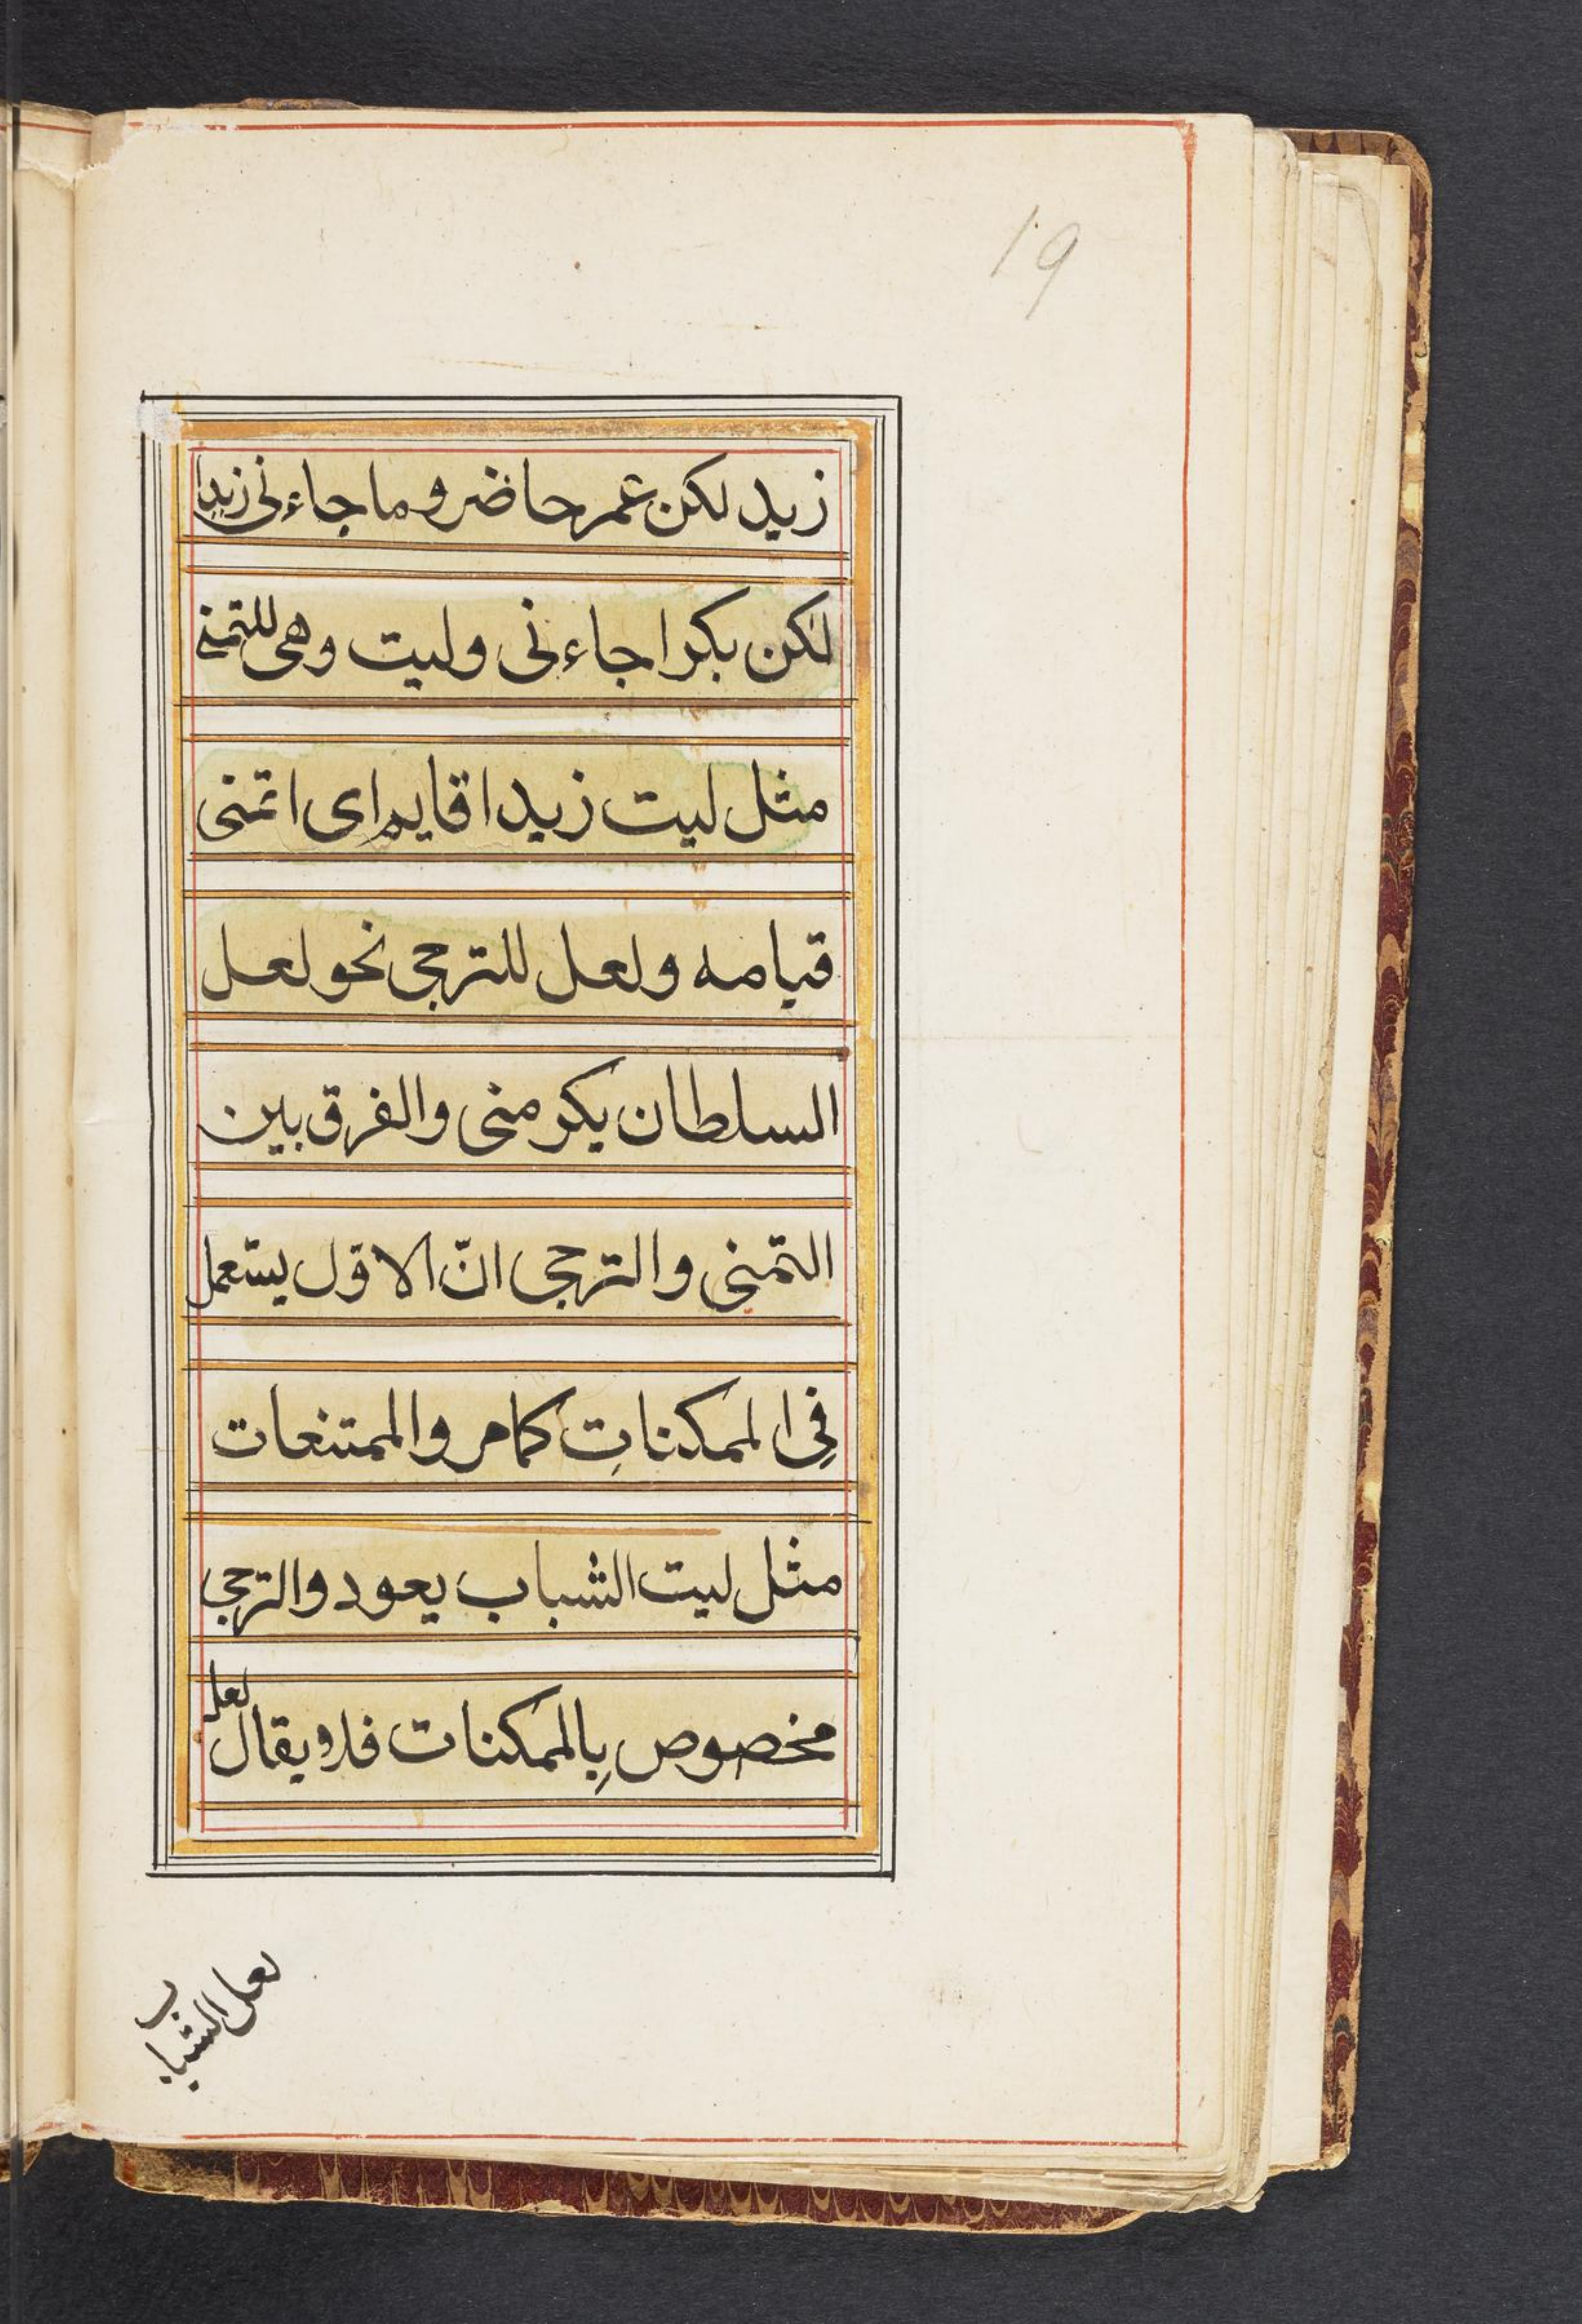 19
زيد لكن عمر حاضر و ما جاءنی زيدا
لكن بكرا جاءنی وليت وهی للتمنی
مثل ليت زيدا قايم ای اتمنی
قيامه ولعل للترجی نحو لعل
السلطان يكرمنی والفرق بين
التمنی والترجی انّ الاوّل يستعمل
فِی الممكناتِ كامر والممتنعات
مثل ليت الشباب يعود والترجی
مخصوص بِالممكنات فلا يقال لعل
لعل الشباب